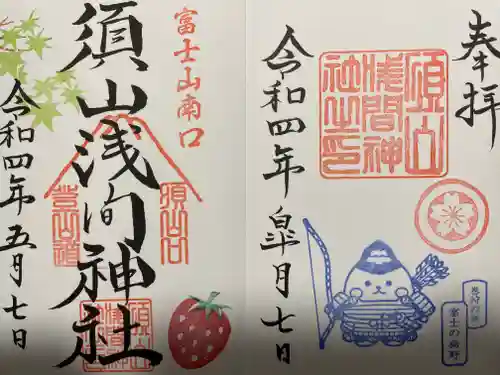 奉拝
須山
浅間神
社之印
令和四年
皐月七日
富士の裾野
富士山南口
須山浅間神社
須山口
登山道
令和四年五月七日